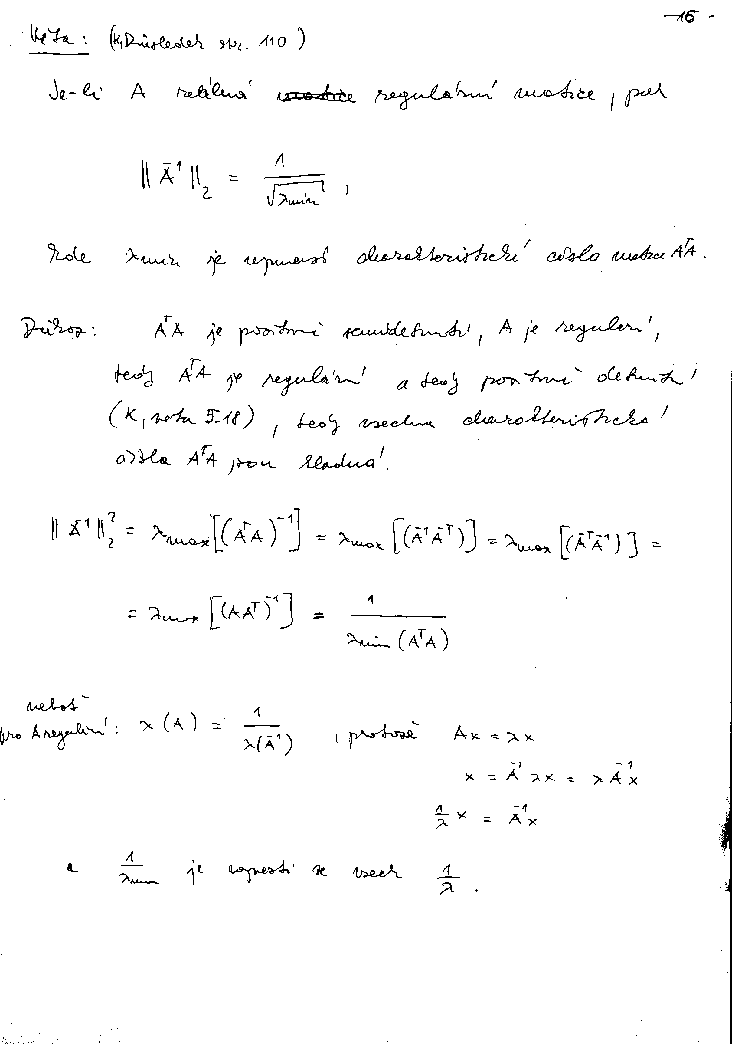 -16-
Věta: (K, Důsledek str. 110)
Je-li A reálná regulární matice, pak
‖A⁻¹‖₂ = 1/√λmin ,
kde λmin je nejmenší charakteristické číslo matice AᵀA.
Důkaz: AᵀA je pozitivně semidefinitní, A je regulární,
tedy AᵀA je regulární a tedy pozitivně definitní
(K, věta 5.18), tedy všechna charakteristická
čísla AᵀA jsou kladná.
‖A⁻¹‖₂² = λmax[(AᵀA)⁻¹] = λmax[(A⁻¹A⁻ᵀ)] = λmax[(A⁻ᵀA⁻¹)] =
= λmax[(AAᵀ)⁻¹] = 1/λmin(AᵀA)
neboť
pro A regulární: λ(A) = 1/λ(A⁻¹) , protože Ax = λx
x = A⁻¹λx = λA⁻¹x
1/λ x = A⁻¹x
a 1/λmin je největší ze všech 1/λ .